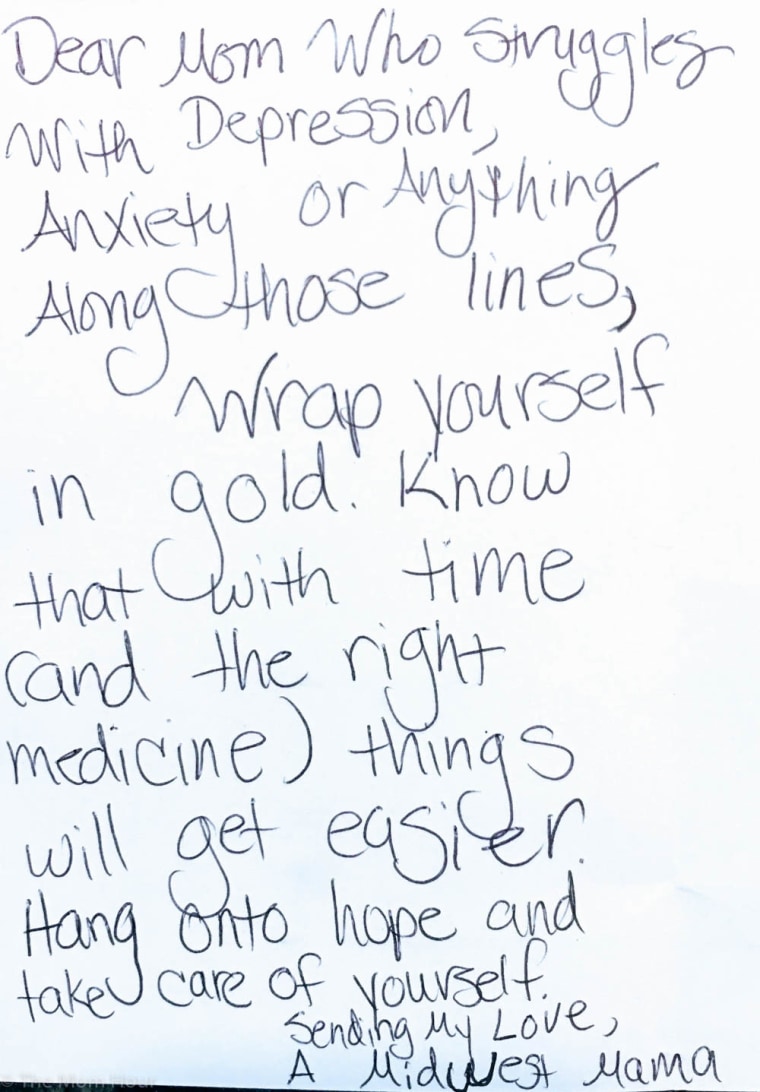 Dear Mom Who Struggles
With Depression,
Anxiety or Anything
Along those lines,
Wrap yourself
in gold. Know
that with time
(and the right
medicine) things
will get easier.
Hang onto hope and
take care of yourself.
Sending My Love,
A Midwest Mama